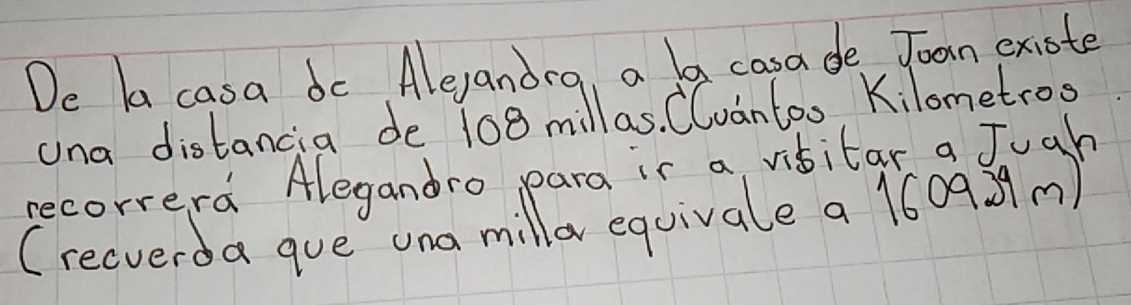 De la casa de Alejandro a la casa de Joan existe
una distancia de 108 millas. ¿Cuántos Kilometros
recorrerá Alegandro para ir a visitar a Juan
(recuerda que una milla equivale a 1609.34 m)